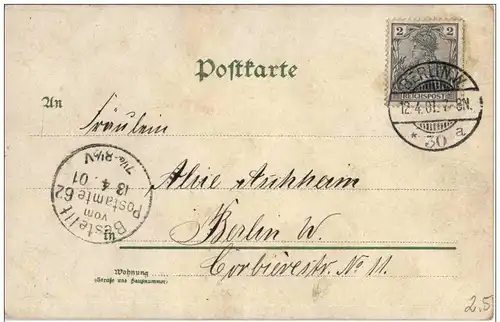 2 2
REICHSPOST
BERLIN.W.
12.4.01. 7-8N.
* 30 a
Postkarte
An
Fräulein
Bestellt
vom
Postamte 62
13 4. 01
7¼-8½V
Alice
in
Berlin W.
Corbièrestr. No 11.
Wohnung
(Straße und Hausnummer)
2.5